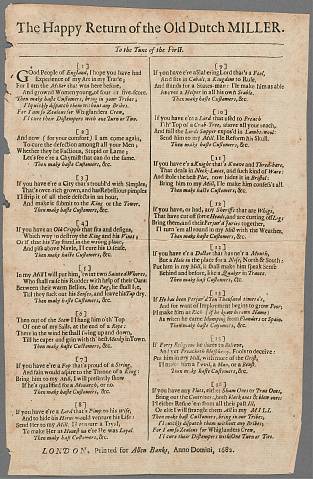 The Happy Return of the Old Dutch MILLER.
To the Tune of the First.
[1]
Good People of England, I hope you have had
Experience of my Art in my Trade;
For I am the Miller that was here before,
And grownd Women young, of four or five-score.
Then make haste Customers, bring in your Tribes;
I'll quickly dispatch them without any Bribes.
For I am so Zealous for Whiglanders Crew,
I'll cure their Distempers with one Turn or Two.
[2]
And now (for your comfort) I am come again,
To cure the defection amongst all your Men;
Whether they be Factious, Stupid or Lame;
Let's see e're a Chymist that can do the same.
Then make haste Customers, &c.
[3]
If you have e're a City that's troubled with Simples,
That's over-rich grown, and hath rebellious pimples
I strip it of all these defects in an hour,
And make it submit to the King or the Tower.
Then make haste Customers, &c.
[4]
If you have an Old Cripple that sits and designs,
Which way to destroy the King and his Lines;
Or if that his Tap stand in the wrong place,
And piss above Navle, I'll cure his Disease,
Then make haste Customers, &c.
[5]
In my Mill I will put him, 'twixt two Sainted Wives,
Who shall rub his
Betwixt their warm Bellies, like Pap, he shall lie,
Till they suck out his Senses, and leave his Tap dry.
Then make haste Customers, &c.
[6]
Then out of the Stone I'll hang him o'th' Top
Of one of my Sails, at the end of a Rope;
There in the wind he shall swing up and down,
Till he caper and grin with th' best Monky in Town.
Then make haste Customers, &c.
[7]
If you have e're a Peer that's proud of a String,
And fain would aspire to the Throne of a King:
Bring him to my Mill, I will presently show
If he's qualified for a Monarch, or no.
Then make haste Customers, &c.
[8]
If you have e're a Lord that's Pimp to his wife,
And to hide his Horns would venture his Life:
Send her to my Mill, I'll ensure a Tryal,
To make Her as Honest as e're He was Loyal.
Then make haste Customers, &c.
[9]
If you have e're a States-King Lord that's a Fool,
And sits in Cabal, a Kingdom to Rule,
And stands for a States-man: He make him as able
As ever a Helper in all his own Stable.
Then make haste Customers, &c.
[10]
If you have e're a Lord that used to Preach
I'th' Top of a Crab-Tree, above all your reach,
And full the Lords Supper expos'd in Lambs-wool:
Send him to my Mill, He Reform his Skull.
Then make haste Customers, &c.
[11]
If you have e're a Knight that's Knave and Threadbare,
That deals in Neck-Laces, and such kind of Ware;
And stole the best Plate, now hides it in Bristol:
Bring him to my Mill, I'll make him confess't all
Then make haste Customers, &c.
[12]
If you have, or had, any Sheriffs that are Whigs,
That have cut off some Heads, and are cutting of Legs
Bring them, and their Perjur'd Juries together,
I'll turn 'em all round in my Mill with the Weather,
Then make haste Customers, &c.
[13]
If you have e're a Doctor that hasne're a Mouth,
But a Hole in the place for a Nose, North & South:
Put him in my Mill, it shall make him speak sense
Behind and before, like a Speaker in France.
Then make haste Customers, &c.
[14]
If He has been Perjur'd Ten Thousand times o're,
And for want of Imployment begins to grow Poor:
I'll make him as Rich (if he be for his own Name)
As when he came Mumping from Flanders or Spain.
Then make haste Customers, &c.
[15]
If Forty Religions he thinks to Believe,
And yet Preacheth Blasphemy, Fools to deceive:
I'll make him a Devil, a Man, or a Beast.
Then make haste Customers, &c.
[16]
If you have any Plots, either Sham Ones or True Ones,
Bring out the Contrivers, both black ones & blew ones:
I'll either Refine 'em from all their past Ill,
Or else I will strangle them All in my MILL.
Then make haste Customers, bring in your Tribes,
I'll quickly dispatch them without any Bribes;
For I am so Zealous for Whiglanders Crew,
I'll cure their Distempers with One Turn or Two.
LONDON, Printed for Allen Banks, Anno Domini, 1682.